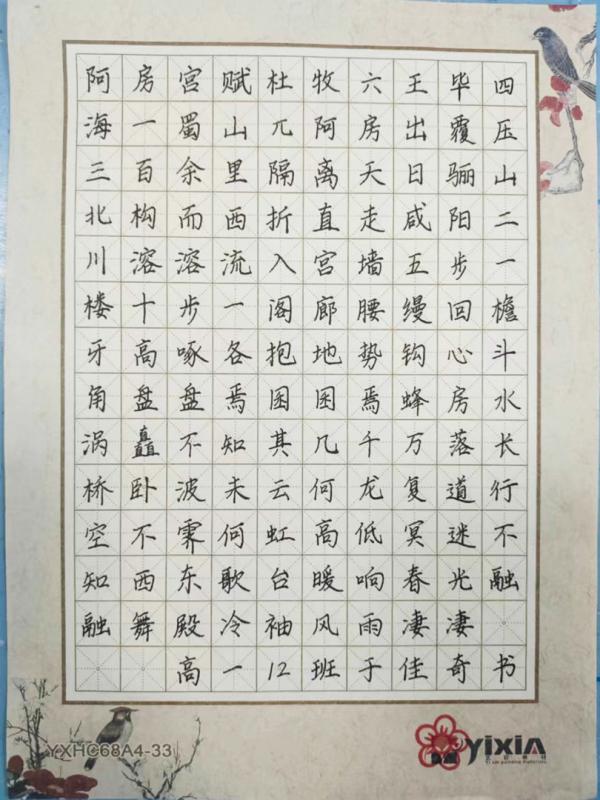 阿房宫赋杜牧六王毕四
海一蜀山兀阿房出覆压
三百余里隔离天日骊山
北构而西折直走咸阳二
川溶溶流入宫墙五步一
楼十步一阁廊腰缦回檐
牙高啄各抱地势钩心斗
角盘盘焉囷囷焉蜂房水
涡矗不知其几千万落长
桥卧波未云何龙复道行
空不霁何虹高低冥迷不
知西东歌台暖响春光融
融舞殿冷袖风雨凄凄
高一12班于佳奇书
YXHC68A4-33
yixin